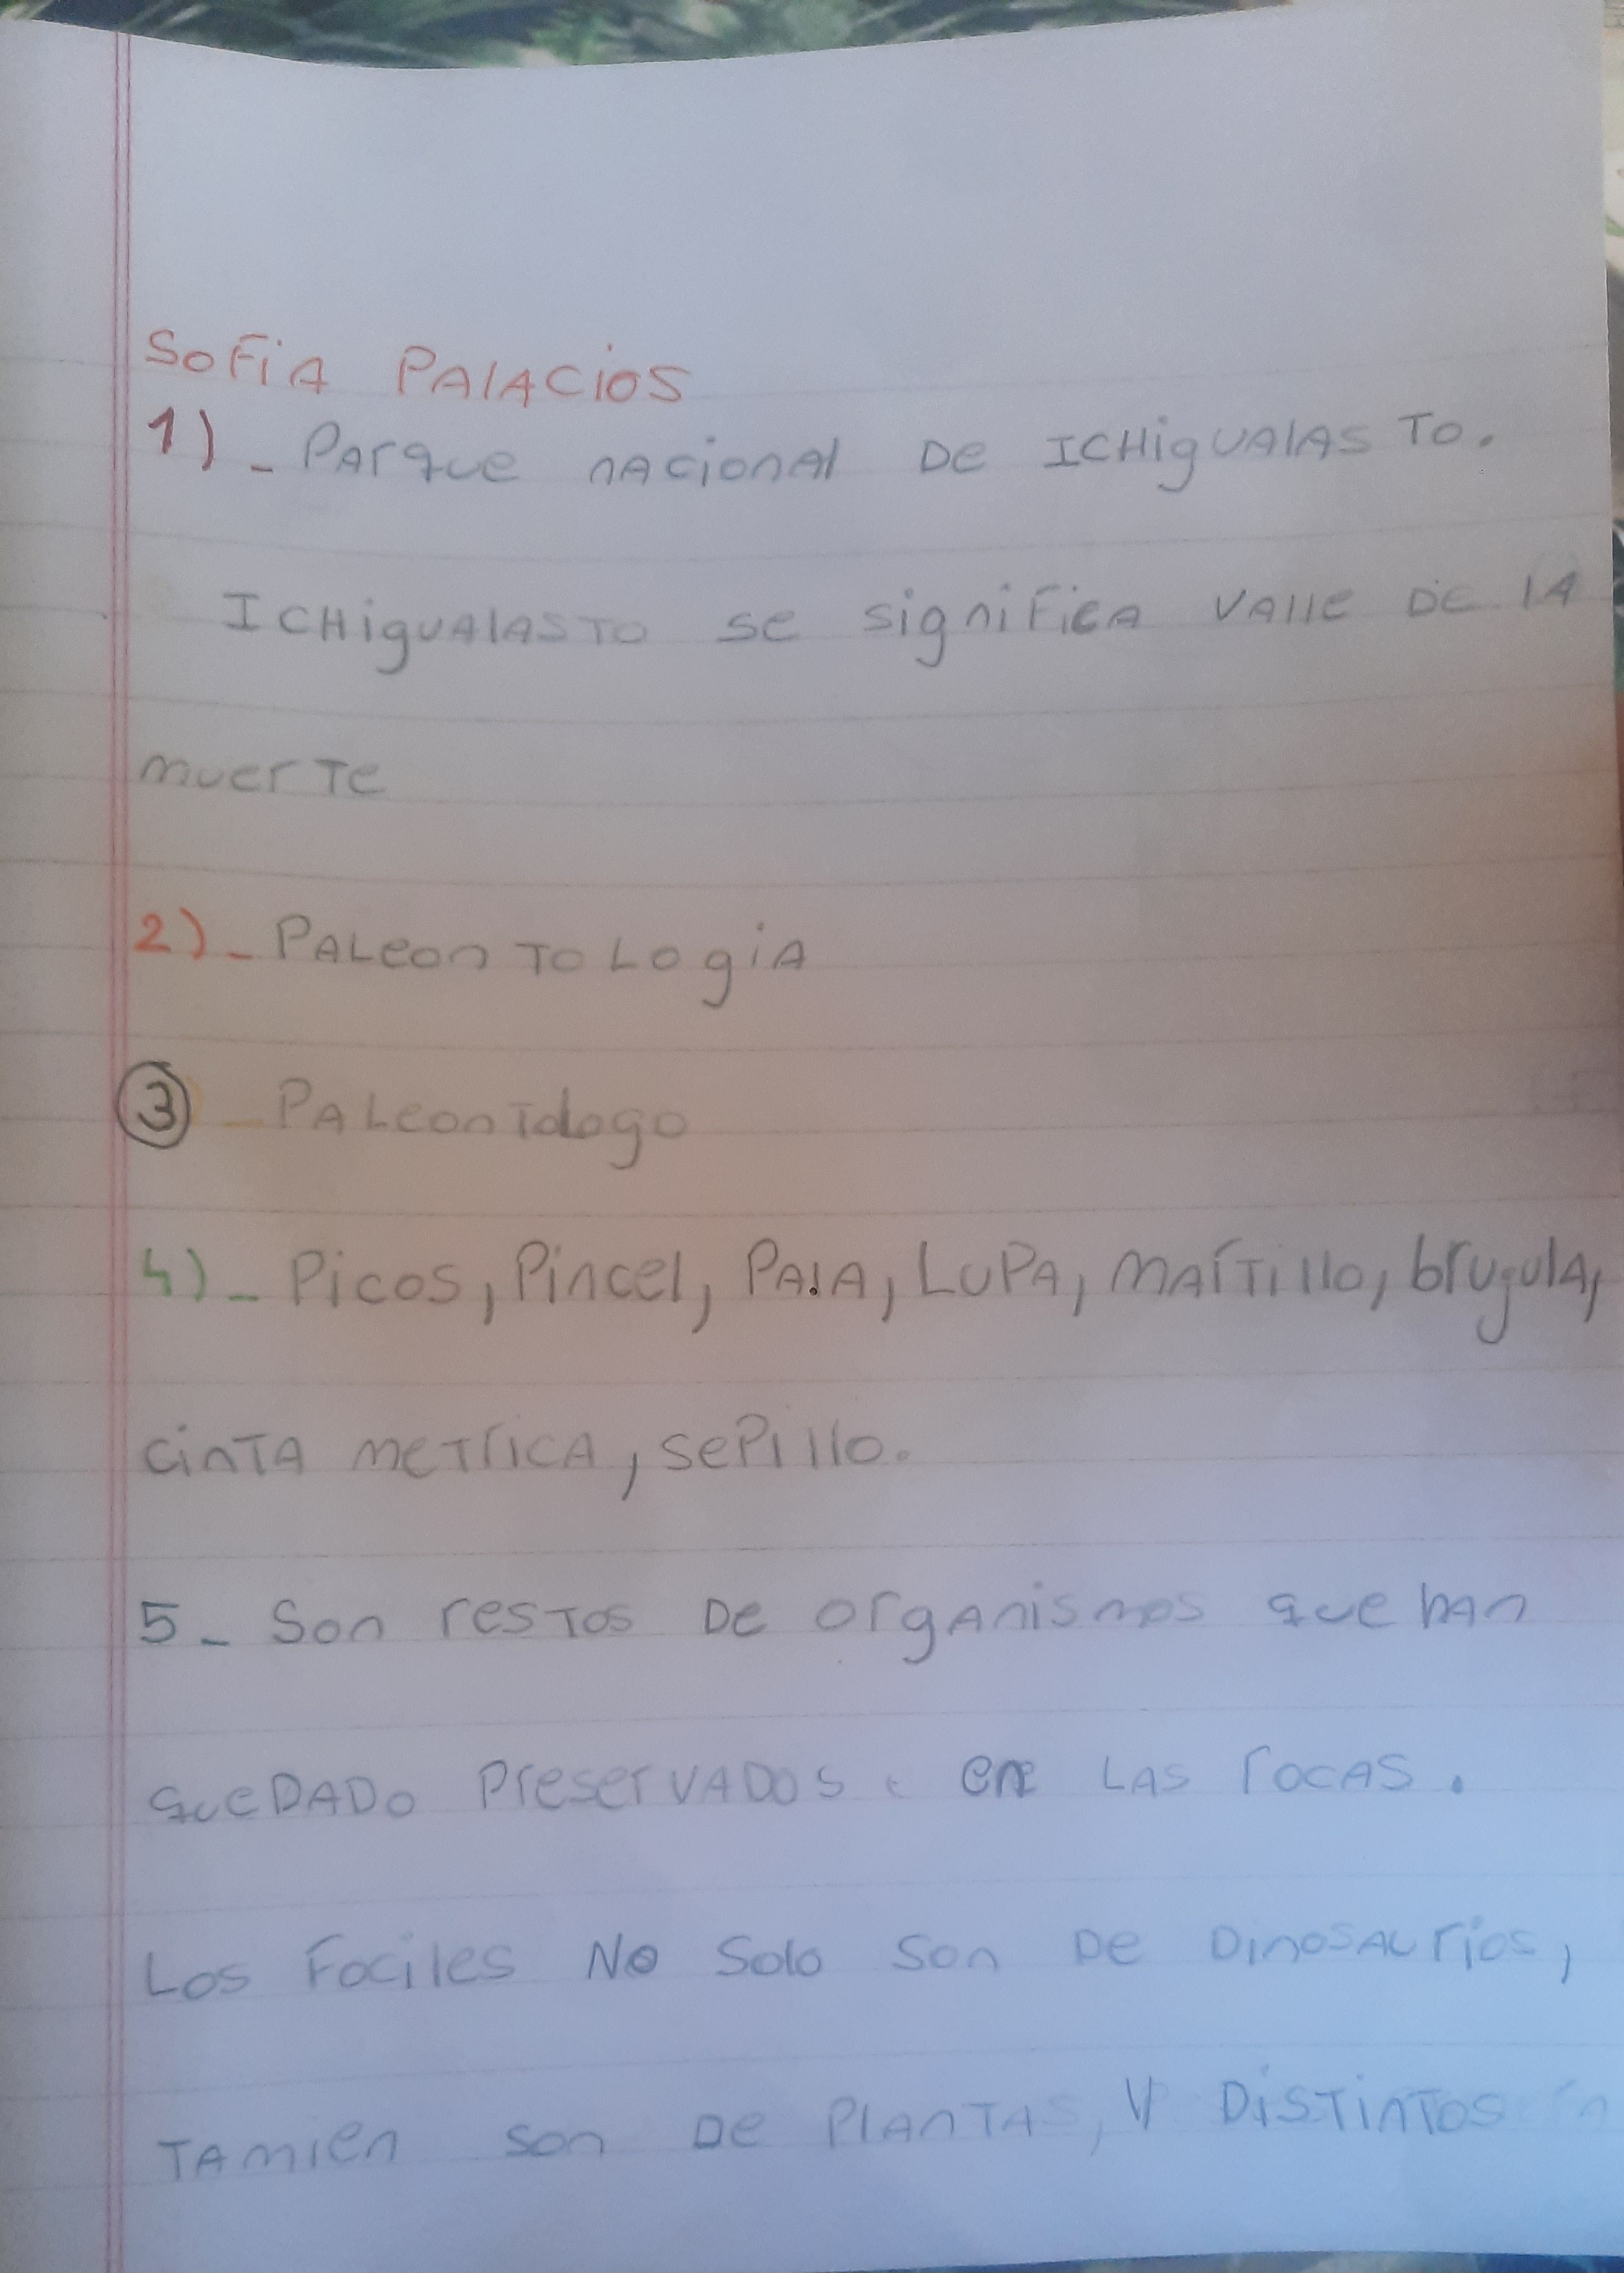 SOFIA PALACIOS
1)_ PArque nAcionAl De ICHigUAlASTO.
ICHigUAlASTO se significA VAlle De lA
muerTe
2)_ PALeonTOLOgiA
3 _ PALeonTologo
4)_ Picos, Pincel, PAlA, LUPA, mArTillo, brujulA,
cinTA meTricA, sePillo.
5_ Son resTos De orgAnismos que han
queDADo PreserVADOS en LAS rocAS.
Los Fociles No Solo Son De DinosAurios,
TAmien son De PlAnTAS, y DiSTinTos